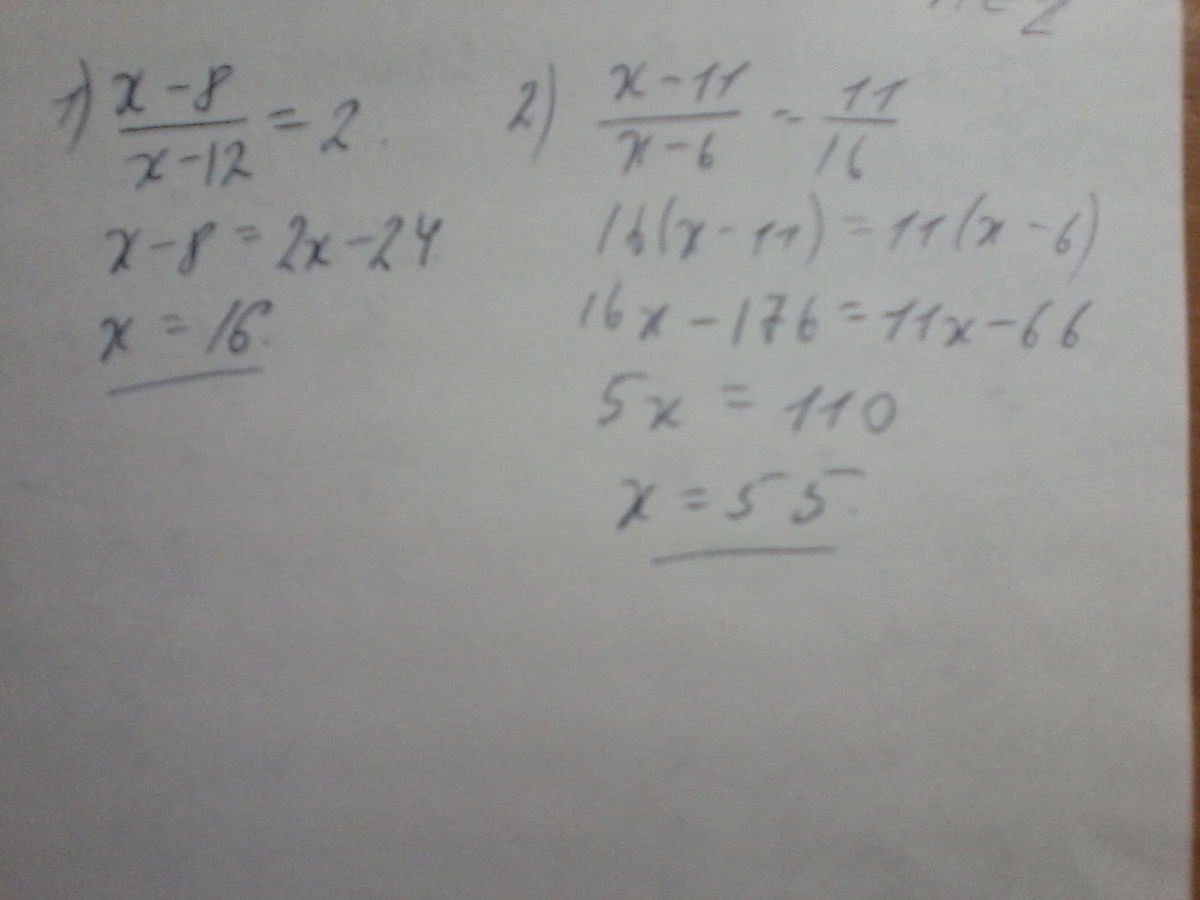 1) x-8/x-12 = 2.
x-8 = 2x-24
x = 16.
2) x-11/x-6 = 11/16
16(x-11) = 11(x-6)
16x-176 = 11x-66
5x = 110
x = 55.